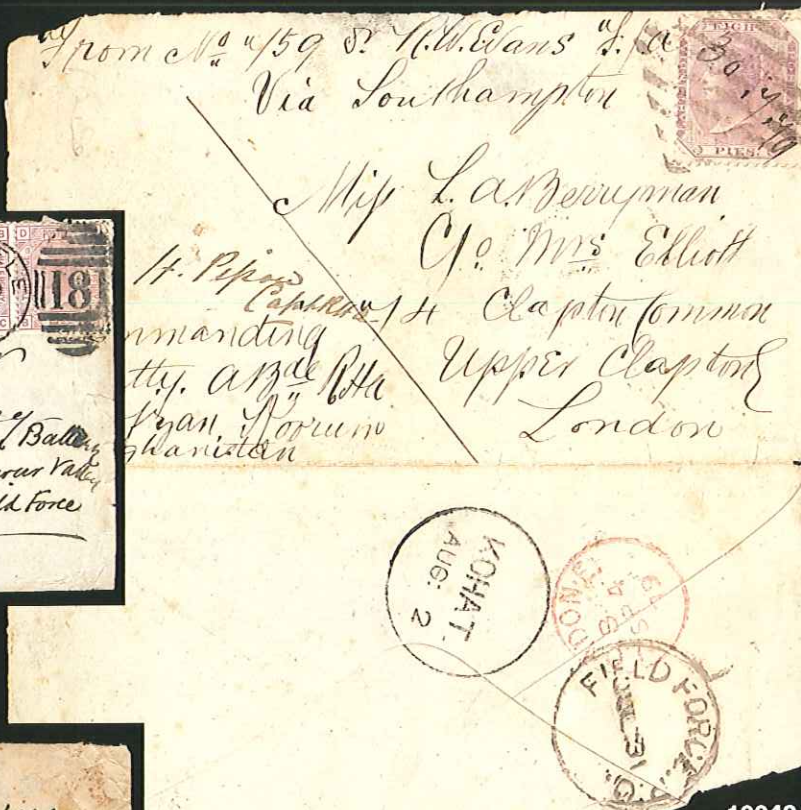 From No 1159 Sr R.W. Evans
Via Southampton
EIGHT
PIES.
30.7.79
Miss L. A. Berryman
C/o Mrs Elliott
14 Clapton Common
Upper Clapton
London
H. Pipon
Capt RHA
mmanding
tty. A Bde RHA
yan Koorum
ghanistan
18
Battery
Valley
ld Force
KOHAT
AUG: 2
FIELD FORCE P.O.
JUL 31